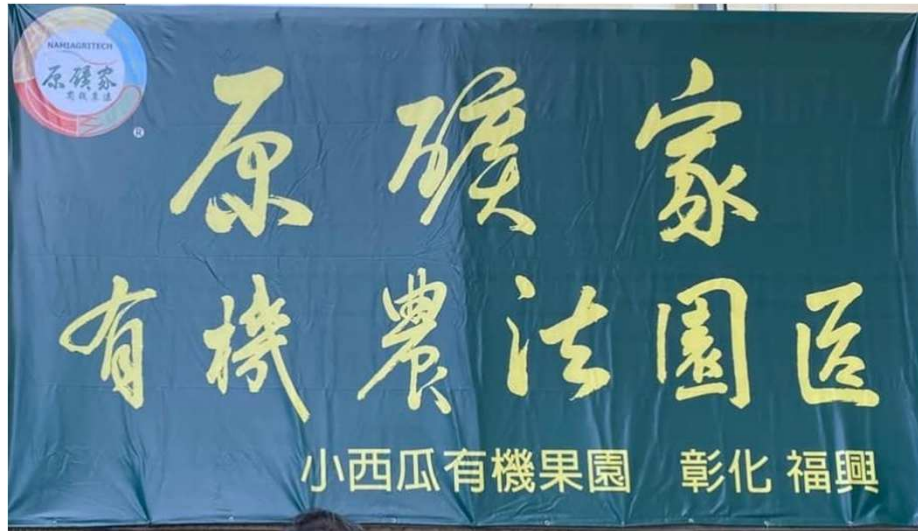 NAMIAGRITECH
原礦家
有機農法
®
原礦家
有機農法園區
小西瓜有機果園 彰化 福興